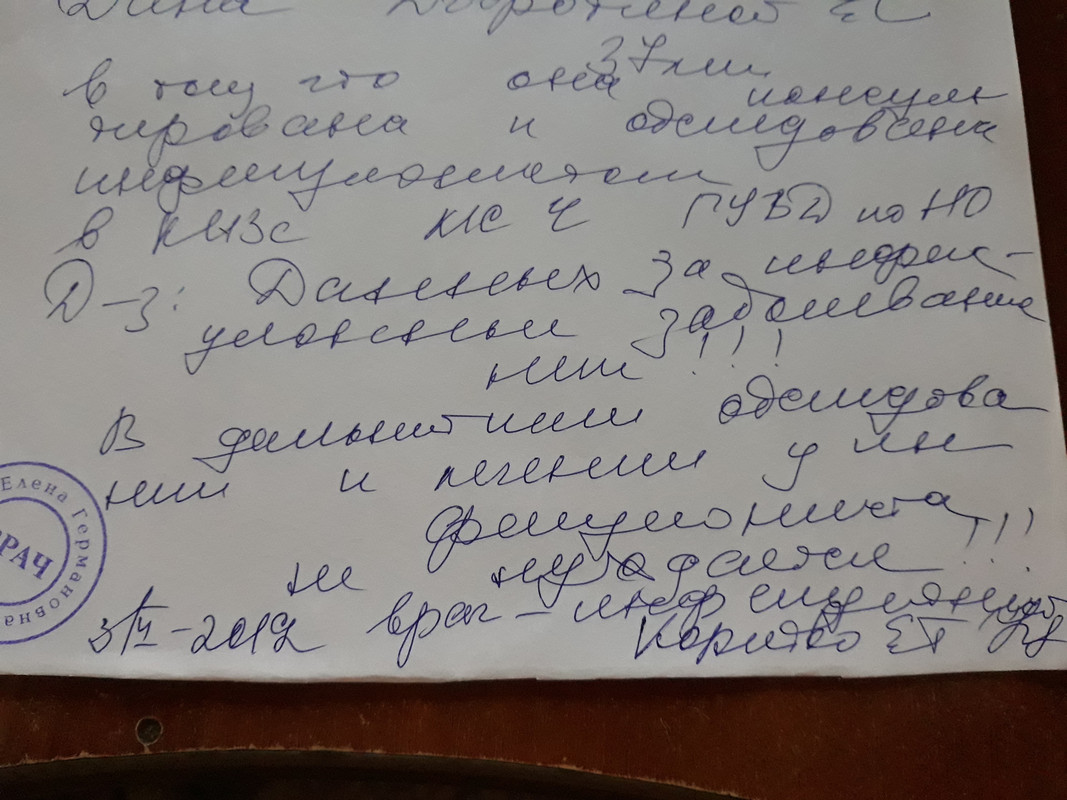 Дана Добротиной ЕС
37 лет
в том что она консуль
тирована и обследована
инфекционистом
в КИЗе МСЧ ГУВД по НО
Д-з: Данных за инфек-
ционные заболевание
нет !!!
В дальнейшем обследова
нии и лечении у ин
фекциониста
не нуждается !!!
врач - инфекционист
ЕГ
Елена Германовна
ВРАЧ